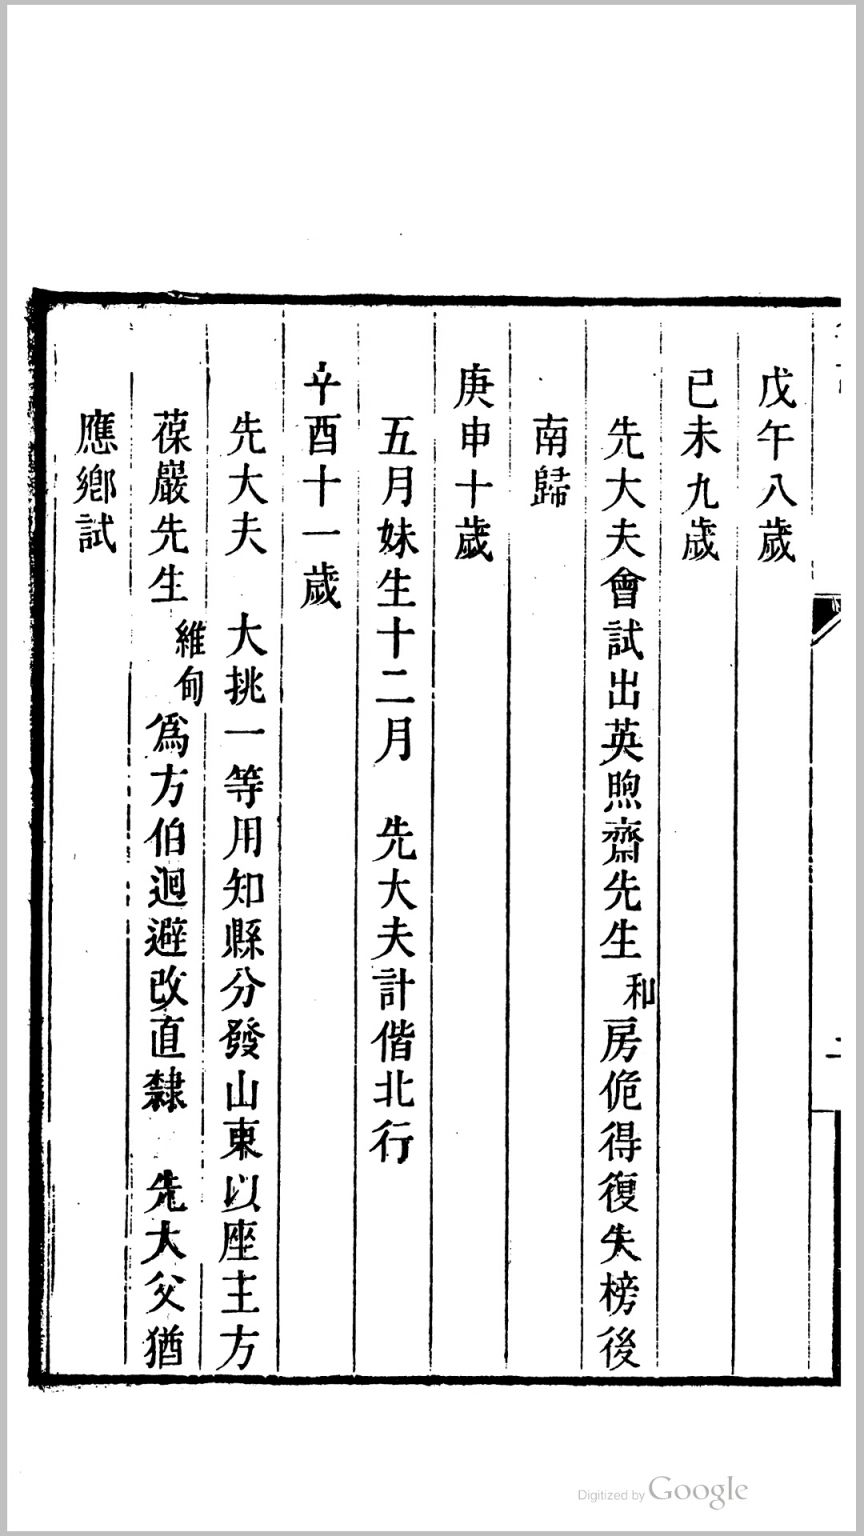 戊午八歲
已未九歲
先大夫會試出英煦齋先生和房佹得復失榜後
南歸
庚申十歲
五月妹生十二月　先大夫計偕北行
辛酉十一歲
先大夫　大挑一等用知縣分發山東以座主方
葆巖先生維甸為方伯迴避改直隸　先大父猶
應鄉試
Digitized by Google